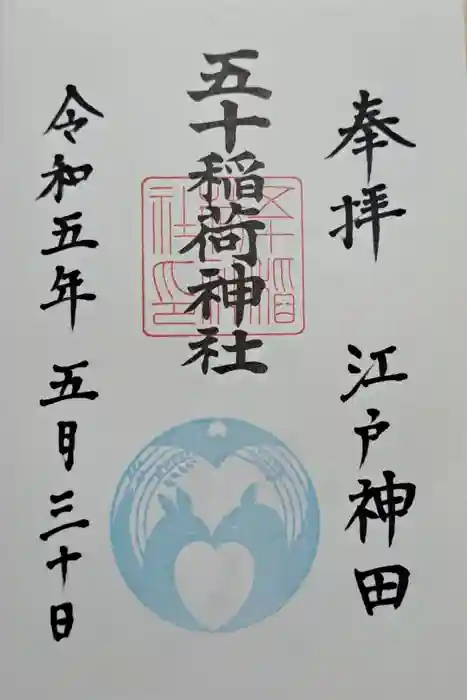 奉拝 江戸神田
五十稲荷神社
令和五年 五月三十日